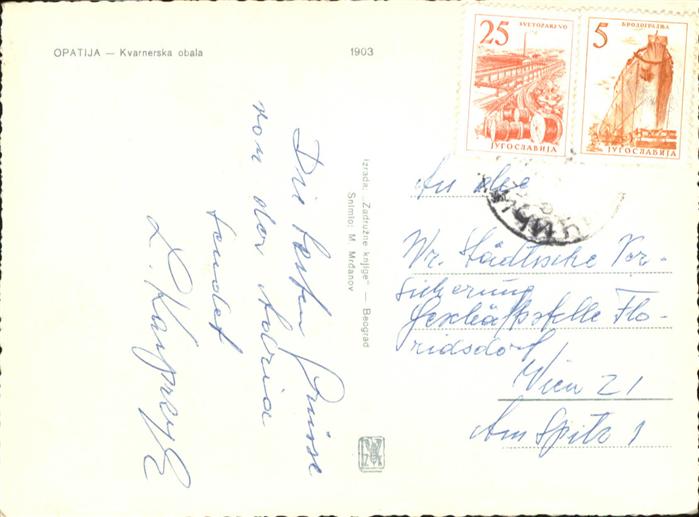 OPATIJA — Kvarnerska obala
1903
25
SVETOZAREVO
ЈУГОСЛАВИЈА
5
БРОДОГРАДЊА
ЈУГОСЛАВИЈА
Die besten Grüsse
von der Adria
sendet
L.
Izrada: „Zadružne knjige" — Beograd
Snimio: M. Mrđanov
An die
Wr. Städtische Ver-
sicherung
Geschäftsstelle Flo-
ridsdorf
Wien 21
Am Spitz 1